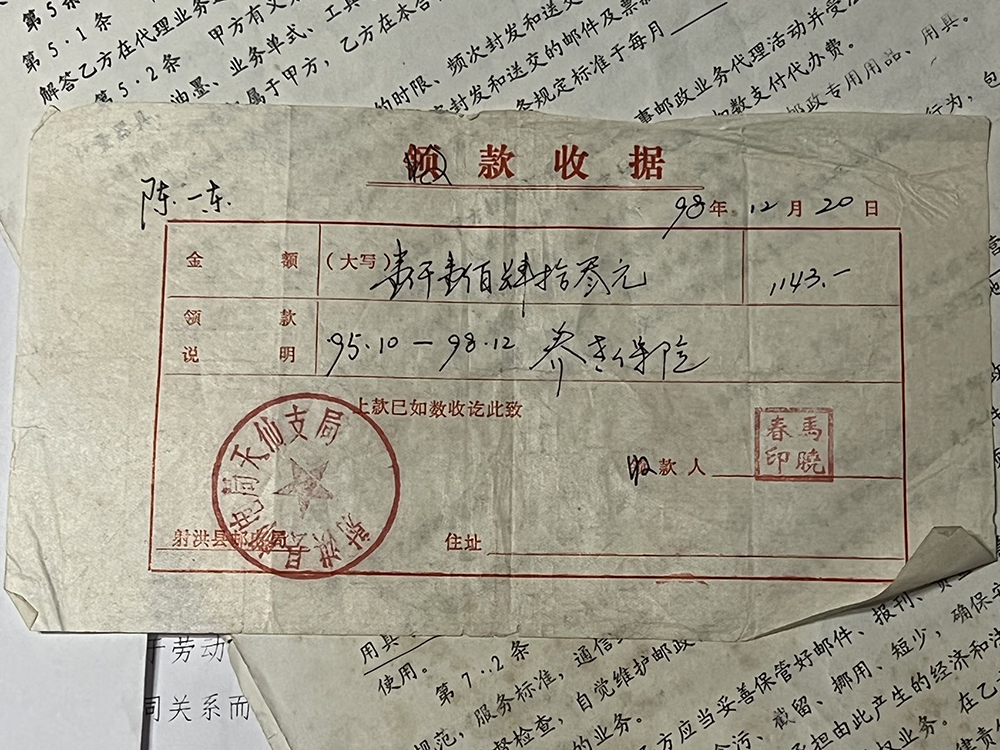 第5·1条
解答乙方在代理业务
甲方有义
第5·2条
油墨、业务单式、工具
乙方在本合
属于甲方,
的时限、频次封发和送交
封发和送交的邮件及票款
条规定标准于每月
事邮政业务代理活动并受法
如数支付代办费。
邮政专用用品、用具。
行为,包
领款收据
收
陈一东
98年12月20日
金额 (大写) 壹仟壹佰肆拾叁元 1143.-
领款说明 95.10—98.12 养老保险
上款已如数收讫此致
射洪县邮电局天仙支局
收款人
马晓春印
射洪县邮电局
住址
于劳动
同关系而
用具
使用。
第7·2条
服务标准, 通信
规范, 自觉维护邮政
督检查,
的业务。
方应当妥善保管好邮件、报刊、
截留、挪用、短少,确保
担由此产生的经济和法
业务。在乙